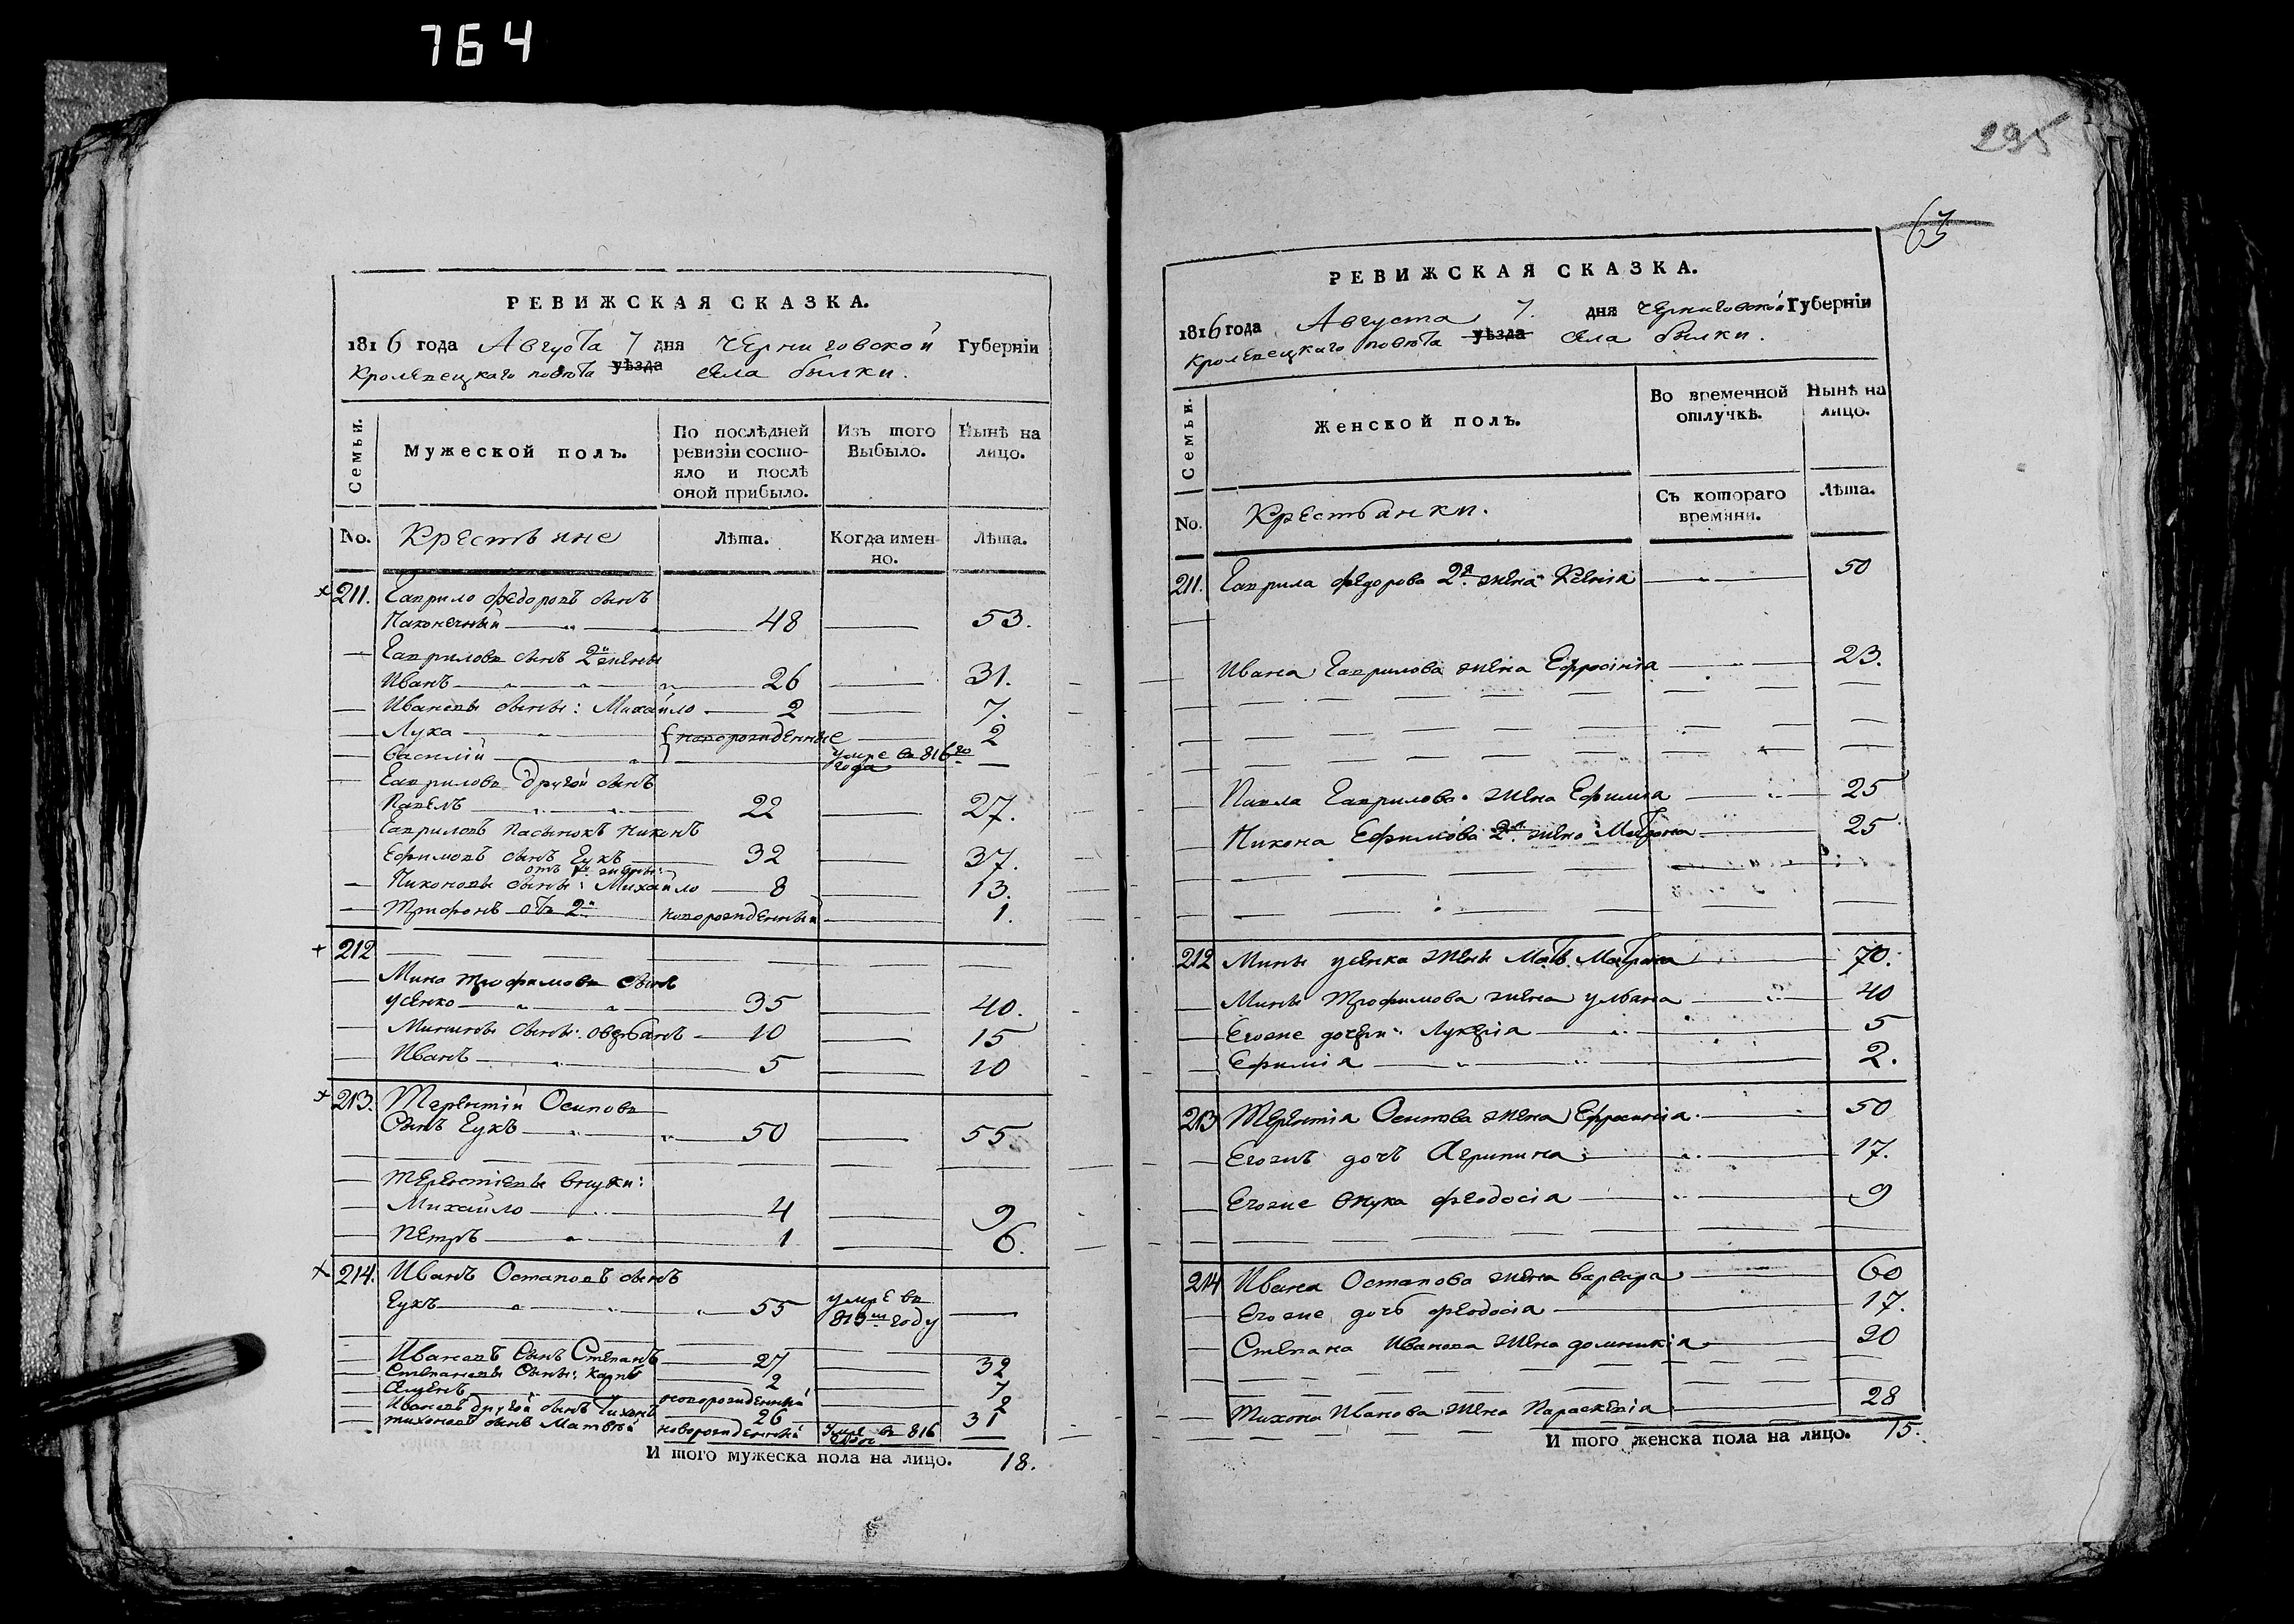 764
РЕВИЖСКАЯ СКАЗКА.
1816 года Августа 7 дня Черниговской Губерніи
Кролевецкаго повѣта уѣзда села былки.
Семьи.
Мужеской полъ.
По послѣдней ревизіи состояло и послѣ оной прибыло.
Изъ того Выбыло.
Нынѣ на лицо.
No. Крестьяне
Лѣта.
Когда именно.
Лѣта.
211. Гаврило Федоровъ сынъ
Наконечный 48 53.
Гавриловъ сынъ 2й жены
Иванъ 26 31.
Ивановы сыны: Михайло 2 7.
Лука новорожденные 2
Василій умре въ 816го года
Гавриловъ другой сынъ
Павелъ 22 27.
Гавриловъ пасынокъ Никонъ
Ефимовъ сынъ Гукъ 32 37.
отъ жены:
Никоновы сыны: Михайло 8 13.
Трифонъ отъ 2й новорожденный 1.
212
Мина Трофимовъ сынъ
Усенко 35 40.
Минины сыны: 10 15
Иванъ 5 10
213. Терентій Осиповъ
Сынъ Гукъ 50 55
Терентіевы внуки:
Михайло 4 9
Петръ 1 6.
214. Иванъ Остаповъ сынъ
Гукъ 55 умре въ 813м году
Ивановъ Сынъ Степанъ 27 32
Степановы Сыны: Карпъ 2 7
Семенъ новорожденный 2
Ивановъ другой сынъ Тихонъ 26 31
Тихоновъ сынъ Матвѣй новорожденный Умре въ 816
И того мужеска пола на лицо. 18.
295
63
РЕВИЖСКАЯ СКАЗКА.
1816 года Августа 7. дня Черниговской Губерніи
Кролевецкаго повѣта уѣзда села былки.
Семьи.
Женской полъ.
Во временной отлучкѣ.
Нынѣ на лицо.
No. Крестьянки.
Съ котораго времяни.
Лѣта.
211. Гаврила Федорова 2я жена Ксенія 50
Ивана Гаврилова жена Ефросинія 23.
Павла Гаврилова жена Ефимія 25
Никона Ефимова 2я жена Матрона 25
212 Мины Усенка жены Мать Матрона 70.
Мины Трофимова жена Ульяна 40
Егоже дочери: Лукерія 5
Ефимія 2.
213 Терентія Осипова жена Ефросинія. 50
Егожъ дочь Агрипина 17.
Егоже внука Феодосія 9
214 Ивана Остапова жена Варвара 60
Егоже дочь Феодосія 17.
Степана Иванова жена Домникія 20
Тихона Иванова жена Параскевія 28
И того женска пола на лицо. 15.